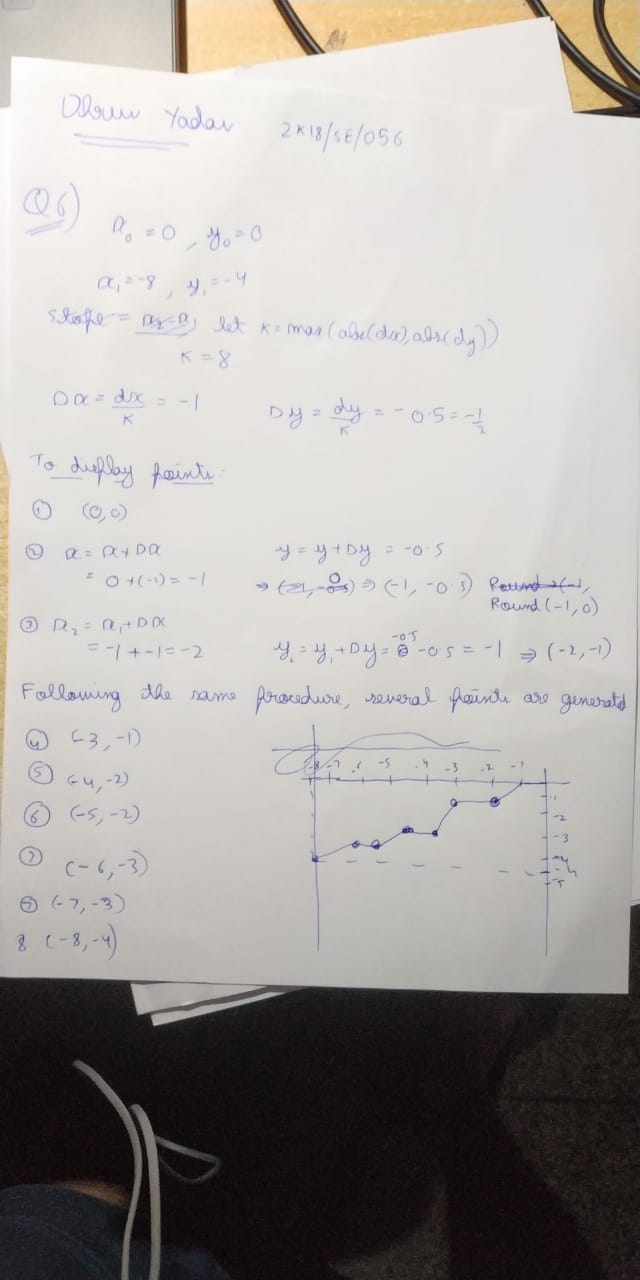 Yadav 2K18/SE/056
Q6)
x₀ = 0 , y₀ = 0
x₁ = -8 , y₁ = -4
let K = max(abs(dx), abs(dy))
K = 8
Dx = dx/K = -1 Dy = dy/K = -0.5 = -1/2
To display points:
① (0,0)
② x = x + Dx y = y + Dy = -0.5
= 0 + (-1) = -1 ⇒ (-1, -0.5)
Round (-1, 0)
③ x₂ = x₁ + Dx y₂ = y₁ + Dy = -0.5 -0.5 = -1 ⇒ (-2, -1)
= -1 + -1 = -2
Following the same procedure, several points are generated
④ (-3, -1)
⑤ (-4, -2)
⑥ (-5, -2)
⑦ (-6, -3)
(-7, -3)
8 (-8, -4)
-8 -7 -6 -5 -4 -3 -2 -1
-1
-2
-3
-4
-5